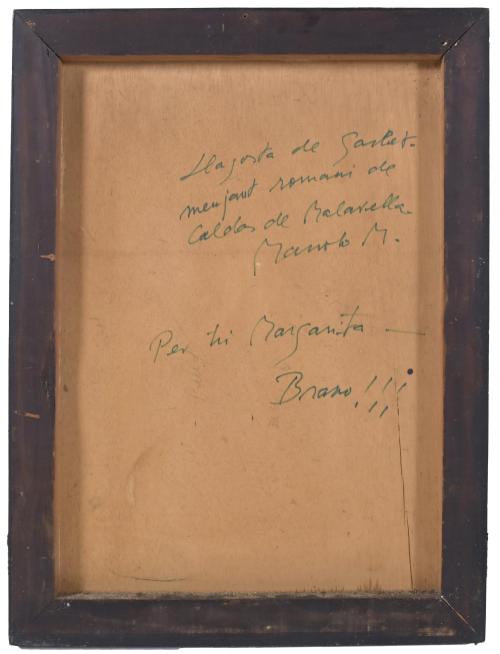 Llagosta de Gasket-
menjant romani de
Caldas de Malavella.
Manolo M.
Per tu Margarita —
Bravo!!!!!